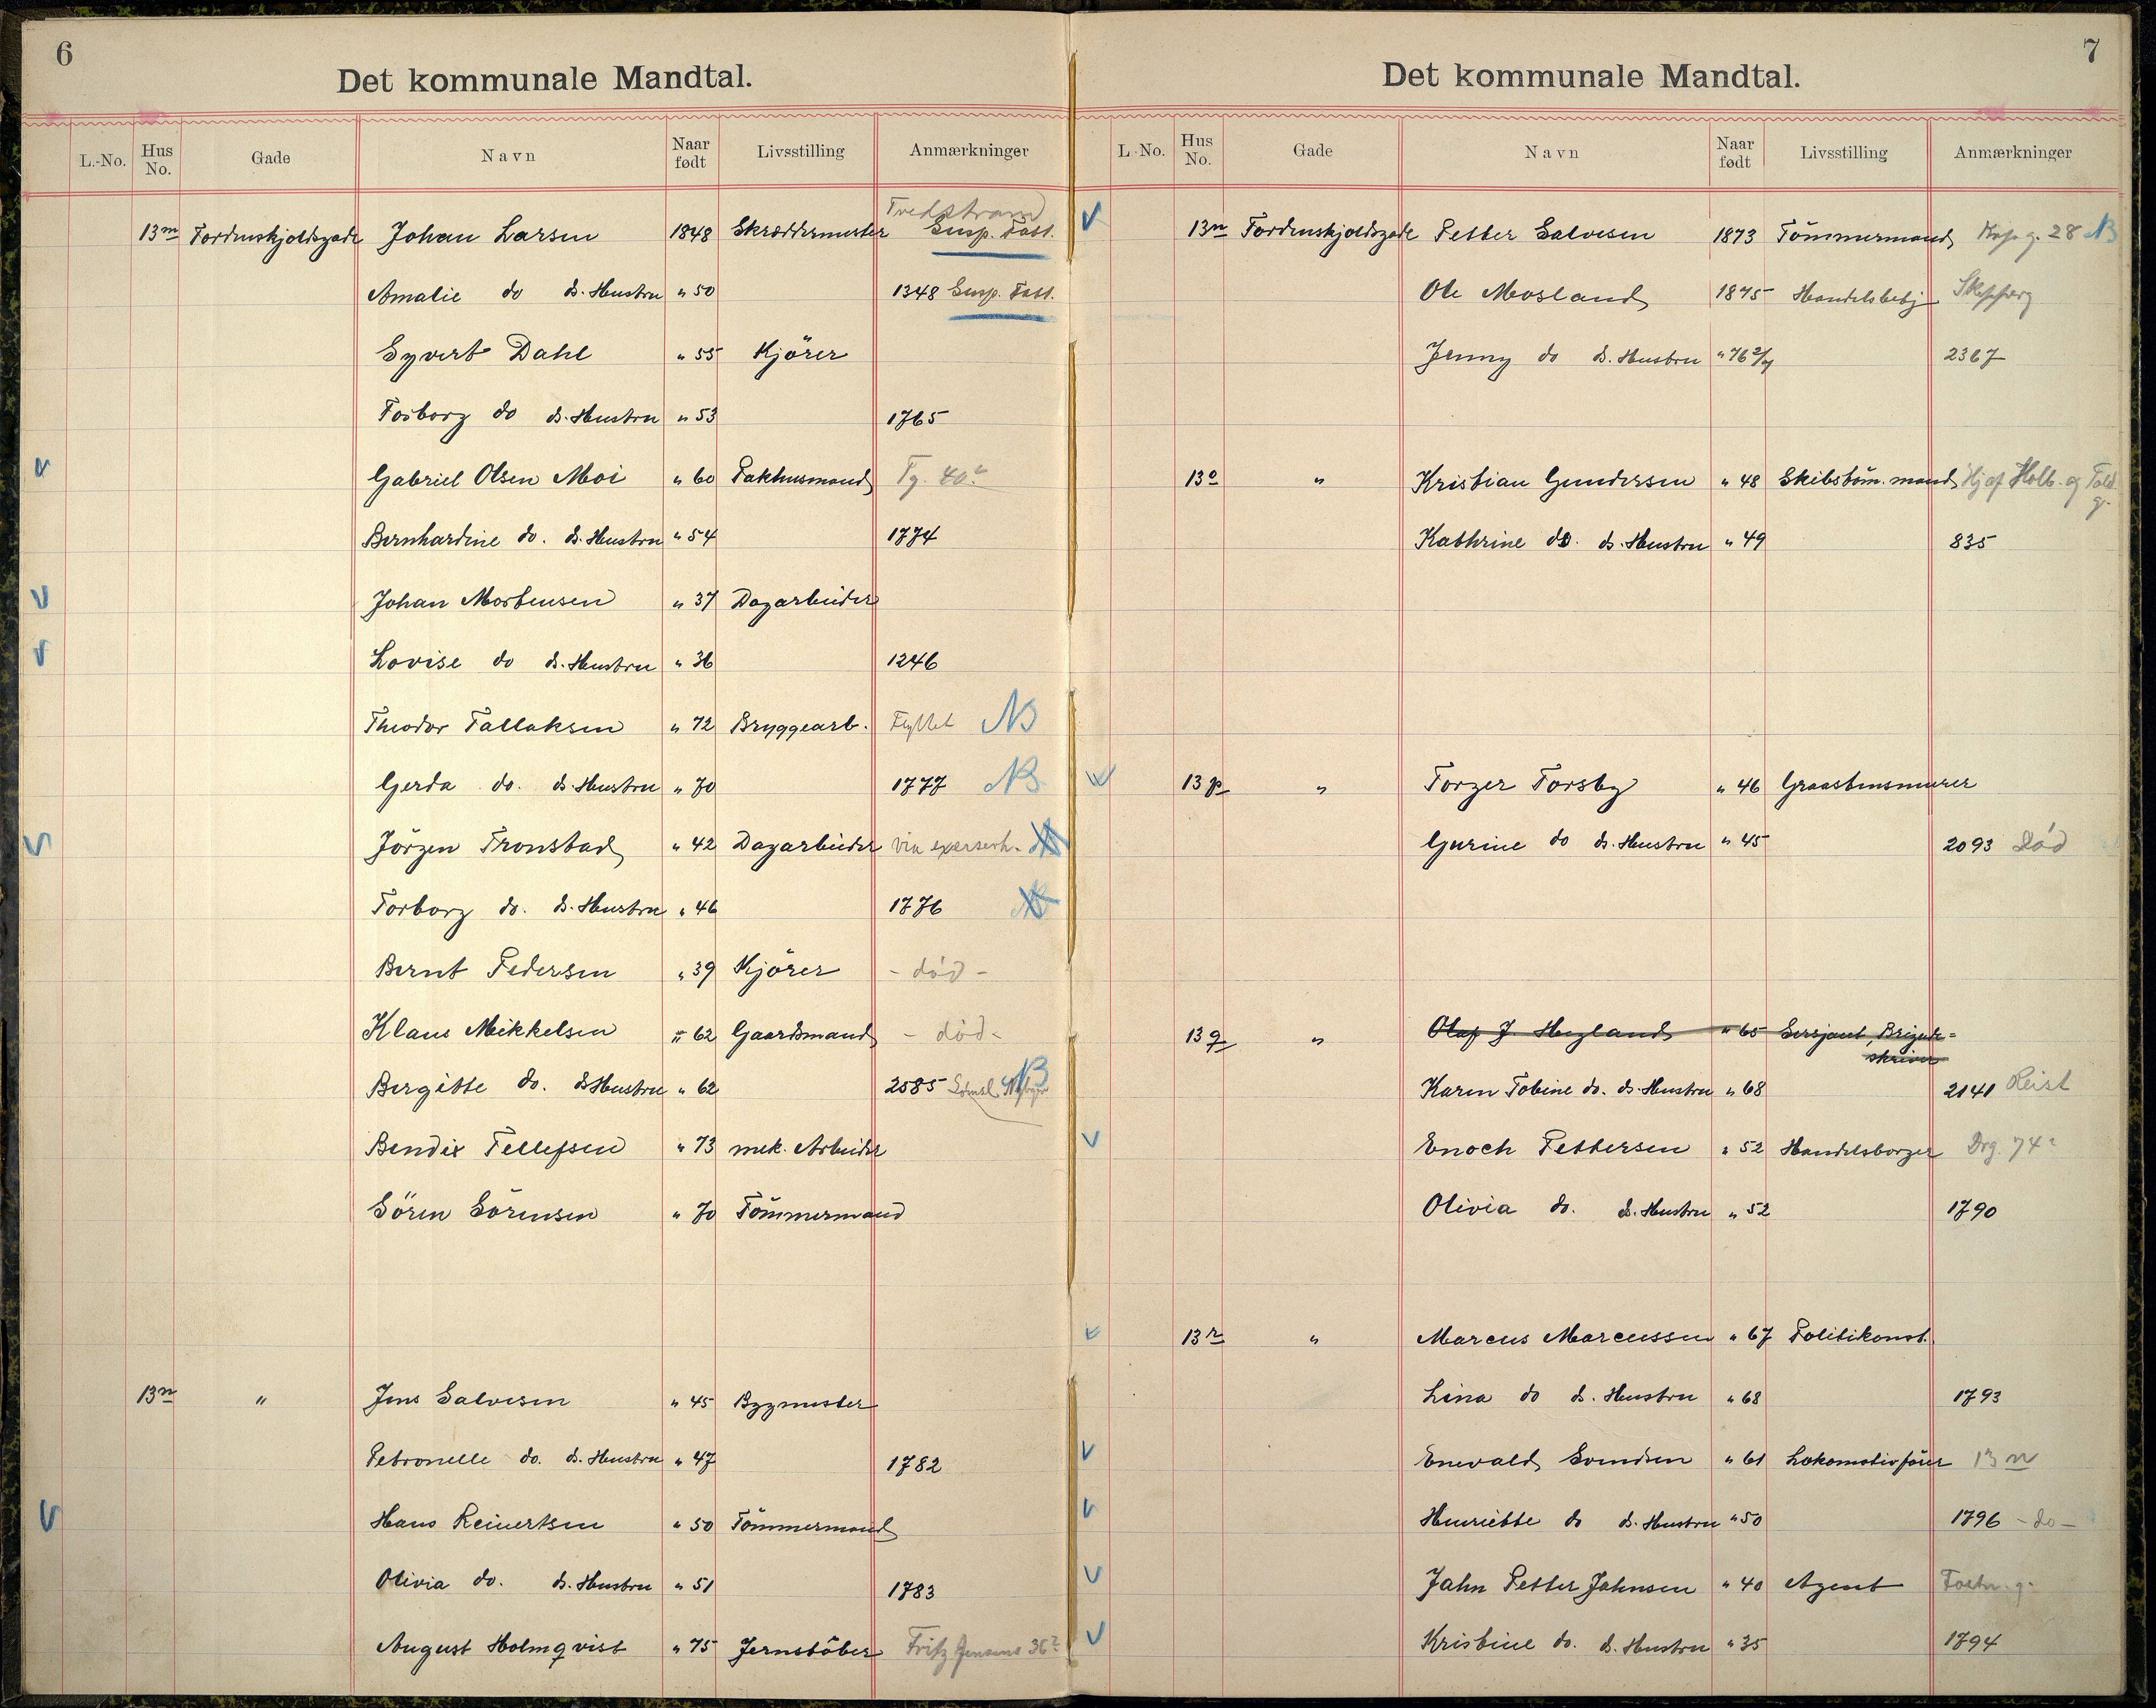 6
Det kommunale Mandtal.
L.-No. Hus No. Gade Navn Naar født Livsstilling Anmærkninger
13m Tordenskjoldsgade Johan Larsen 1848 Skræddermester Susp. Fatt.
Amalie do d. Hustru " 50 1348 Susp. Fatt.
Syvert Dahl " 55 Kjörer
Torborg do d. Hustru " 53 1765
Gabriel Olsen Moi " 60 Pakhusmand
Bernhardine do. d. Hustru " 54 1774
Johan Mortensen " 37 Dagarbeider
Lovise do d. Hustru " 36 1246
Theodor Tallaksen " 72 Bryggearb. Flyttet NB
Gerda do. d. Hustru " 70 1777 NB
Jörgen Tronstad " 42 Dagarbeider
Torborg do. d. Hustru " 46 1776
Bernt Pedersen " 39 Kjörer - död -
Klaus Mikkelsen " 62 Gaardsmand - död -
Birgitte do. d. Hustru " 62 2585 NB
Bendix Tellefsen " 73 mek. Arbeider
Sören Sörensen " 70 Tömmermand
13n " Jens Salvesen " 45 Bygmester
Petronelle do. d. Hustru " 47 1782
Hans Reinertsen " 50 Tömmermand
Olivia do. d. Hustru " 51 1783
August Holmqvist " 75 Jernstöber
7
Det kommunale Mandtal.
L.-No. Hus No. Gade Navn Naar født Livsstilling Anmærkninger
13n Tordenskjoldsgade Petter Salvesen 1873 Tömmermand 28 NB
Ole Mosland 1875 Handelsbetj
Jenny do d. Hustru " 76 2367
13o " Kristian Gundersen " 48 Skibstöm.mand
Kathrine do. d. Hustru " 49 835
13p " Torger Torsby " 46 Graastensmurer
Gurine do d. Hustru " 45 2093 Död
13q " Olaf J. Hegland " 65 Sersjant, Brigade=
skriver
Karen Tobine do. d. Hustru " 68 2141 Reist
Enoch Pettersen " 52 Handelsborger
Olivia do. d. Hustru " 52 1790
13r " Marcus Marcussen " 67 Politikonst.
Lina do d. Hustru " 68 1793
Enevald Svendsen " 61 Lokomotivförer 13n
Henriette do d. Hustru " 50 1796 - do -
Jahn Petter Jahnsen " 40 Agent
Kristine do. d. Hustru " 35 1794